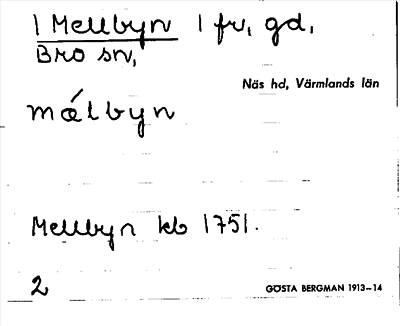 1 Mellbyn 1 fr, gd,
Bro sn,
Näs hd, Värmlands län
mǽlbyn
Mellbyn kb 1751.
2
GÖSTA BERGMAN 1913–14